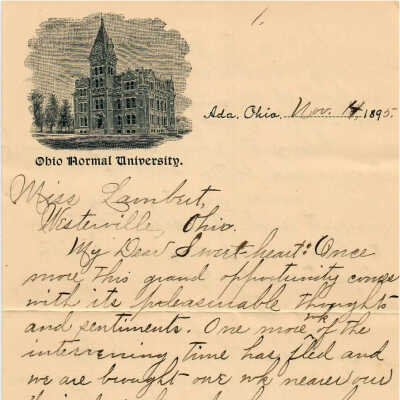 1.
Ada, Ohio, Nov. 14, 1895.
Ohio Normal University.
Miss Lambert,
Westerville, Ohio.
My Dear Sweet-heart: Once
more this grand opportunity comes
with its pleasurable thoughts
and sentiments. One more wk of the
intervening time has fled and
we are brought one wk nearer our